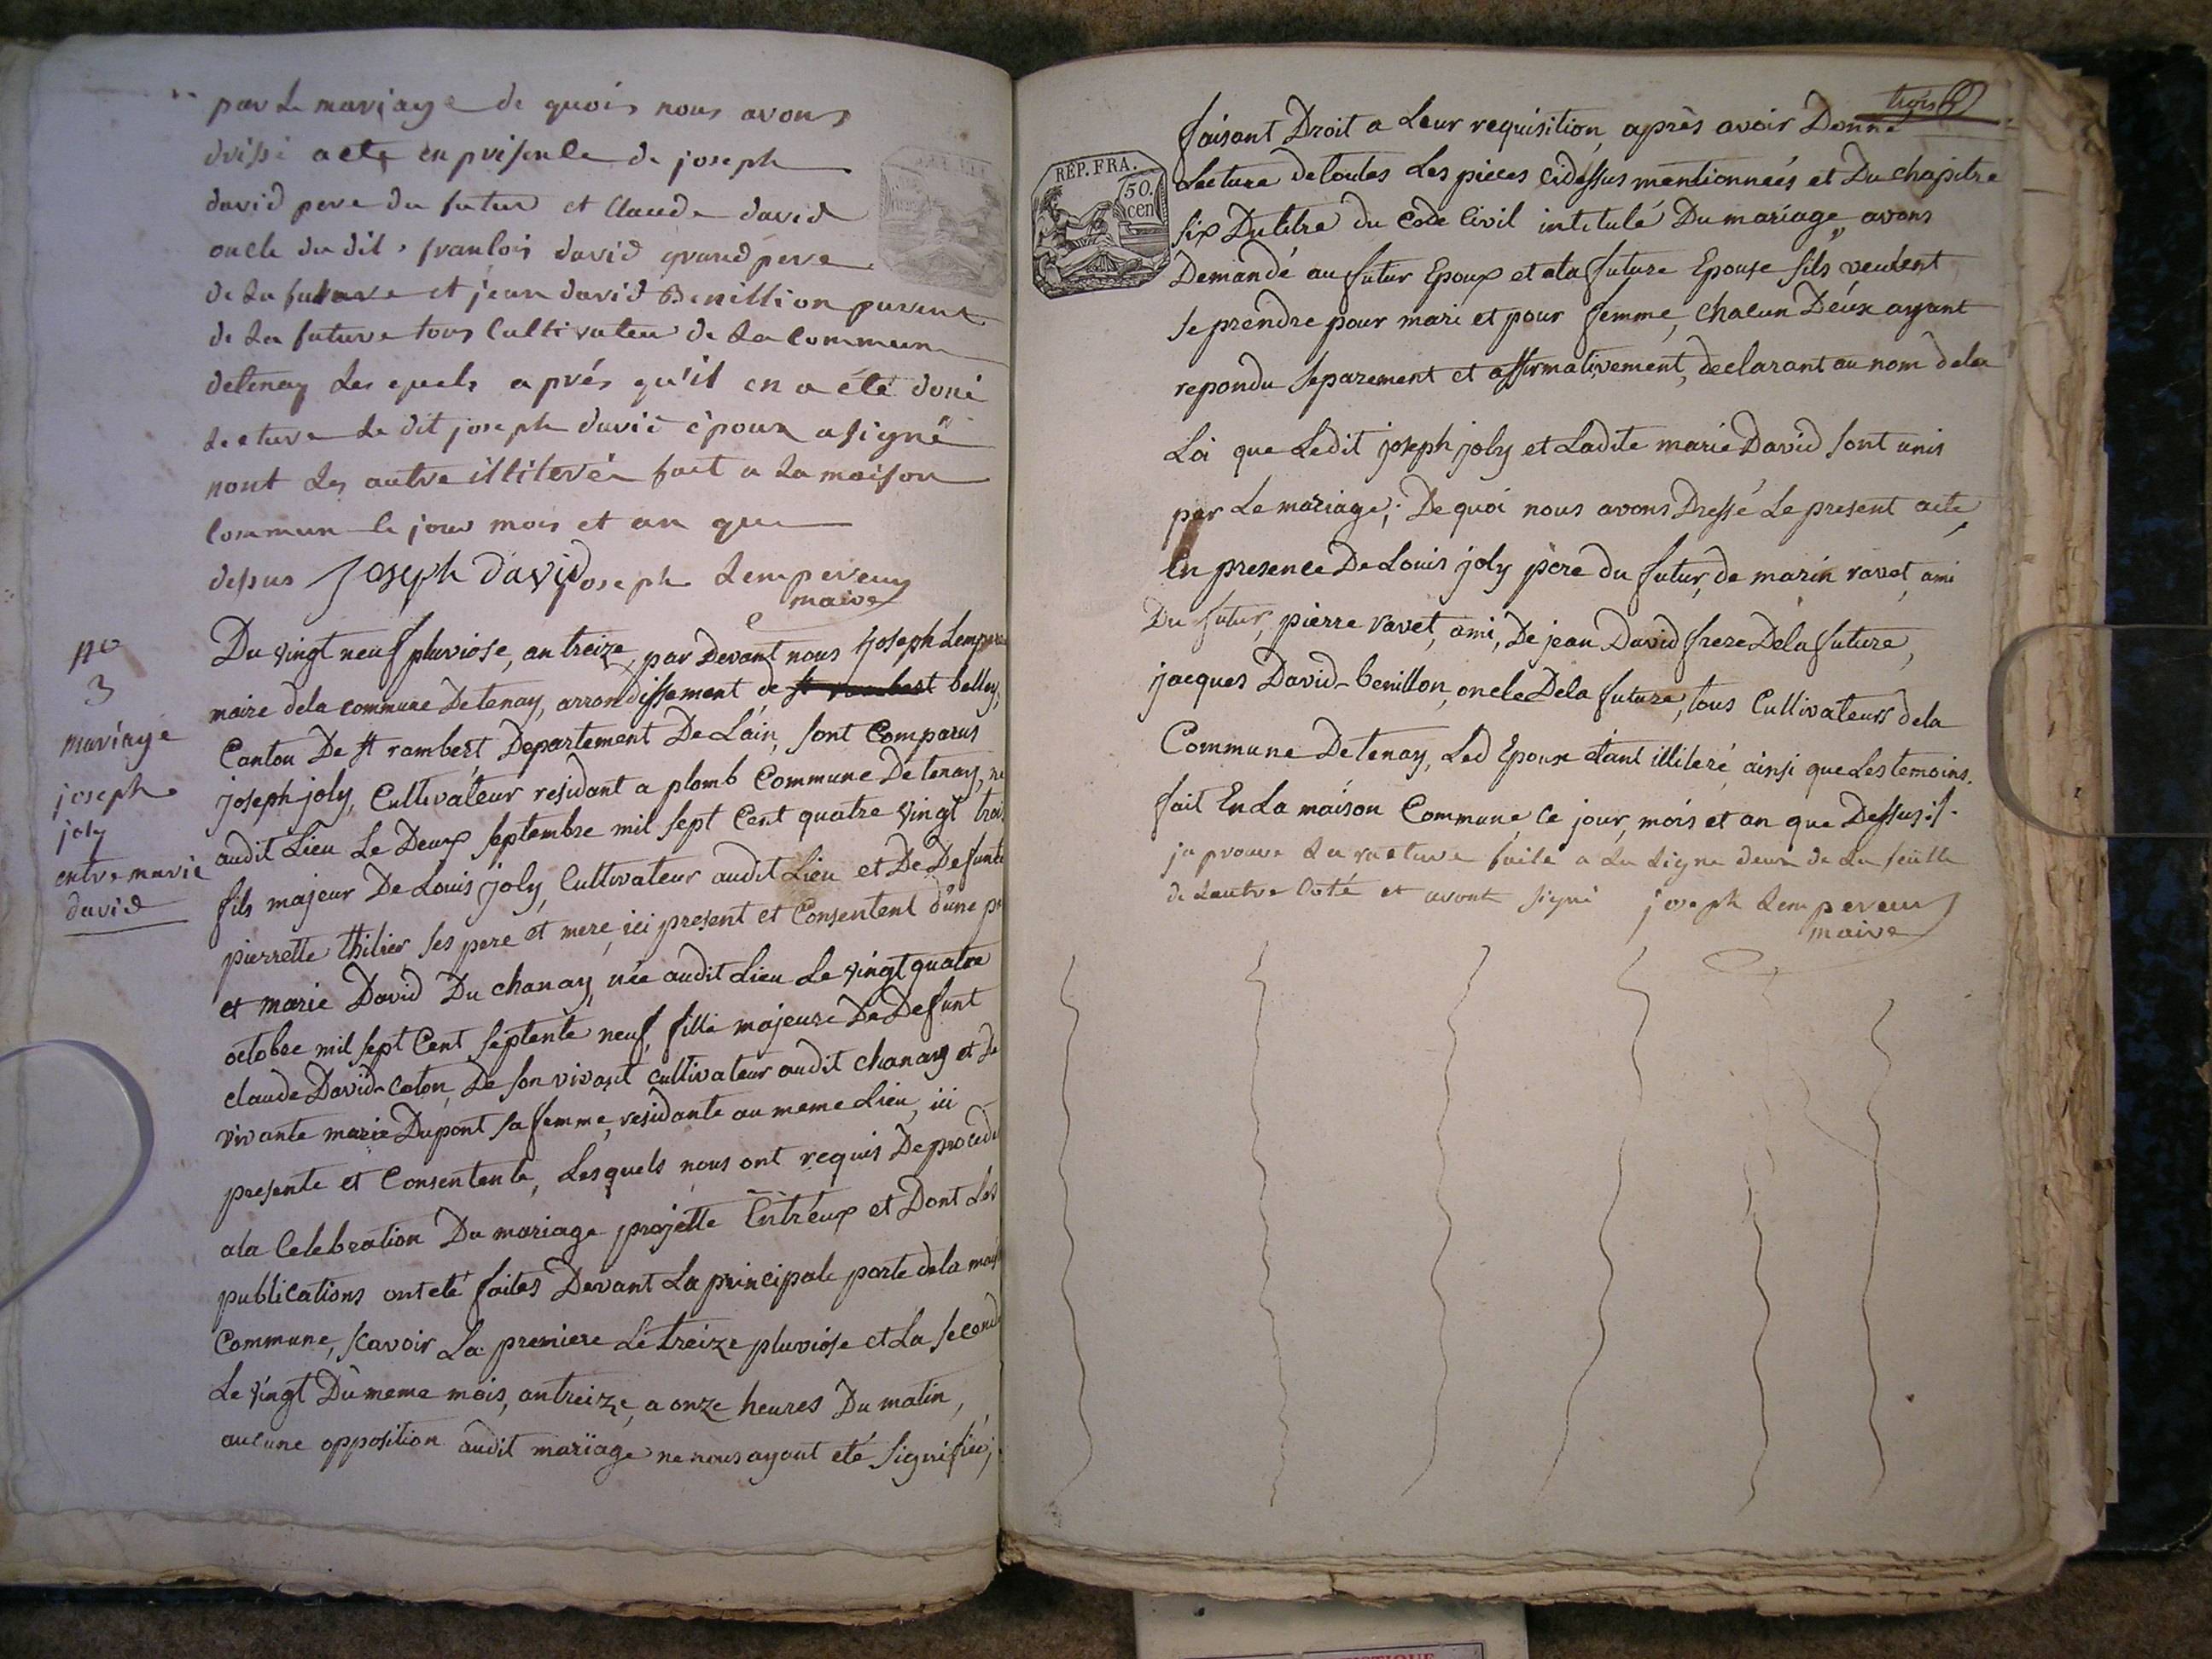 par le mariage de quoi nous avons
dressé acte en presence de joseph
david pere du futur et Claude david
oncle du dit, françois david grand pere
de la future et jean david Benillion parent
de la future tous Cultivateur de la Commune
detenay les quels aprés qu'il en a été doné
lecture le dit joseph david époux a signé
nont les autre illiterés fait a la maison
Commun le jour mois et an que
dessus Joseph david joseph Lempereur
maire
no
3
mariage
joseph
joly
entre marie
david
Du vingt neuf pluviose, an treize, par Devant nous Joseph Lempere
maire dela commune Detenay, arrondissement de st rambert belley,
Canton De st rambert Departement De Lain, sont Comparus
joseph joly, Cultivateur residant a plomb Commune De tenay, né
audit Lieu Le Deux septembre mil sept Cent quatre vingt trois
fils majeur De Louis joly, Cultivateur audit Lieu et De Defunte
pierrette thilier ses pere et mere, ici present et Consentent d'une p
et marie David Du chanay, née audit Lieu Le vingt quatre
octobre mil sept Cent septente neuf, fille majeure De Defunt
claude David-Coton, De son vivant cultivateur audit chanay et De
vivante marie Dupont sa femme, residante au meme Lieu, ici
presente et Consentente, Lesquels nous ont requis De proceder
ala Celebration Du mariage projetté Entr'eux et Dont Les
publications ont eté faites Devant La principale porte dela mais
Commune, scavoir La premiere Le treize pluviose et La second
Le vingt Du meme mois, an treize, a onze heures Du matin,
aucune opposition audit mariage ne nous ayant eté signifiée,
trois
RÉP. FRA.
50.
cen
faisant Droit a Leur requisition, après avoir Donné
Lecture de toutes Les pieces cidessus mentionneés et Du chapitre
six Du titre du Code Civil intitulé Du mariage, avons
Demandé au futur Epoux et ala future Epouse sils veulent
se prendre pour mari et pour femme, chacun D'eux ayant
repondu separement et affirmativement, declarant au nom dela
Loi que Ledit joseph joly et Ladite marie David sont unis
par Le mariage; De quoi nous avons Dressé Le present acte,
En presence De Louis joly pere du futur, de marin ravet, ami
Du futur, pierre ravet, ami, De jean David frere Dela future,
jacques David-benillon, oncle Dela future, tous Cultivateurs dela
Commune De tenay, Led Epoux etant illiteré ainsi que Les temoins.
fait En La maison Commune ce jour, mois et an que Dessus.
japrouve la rature faite a la ligne deux de la feuille
de lautre Coté et avont signé joseph Lempereur
maire